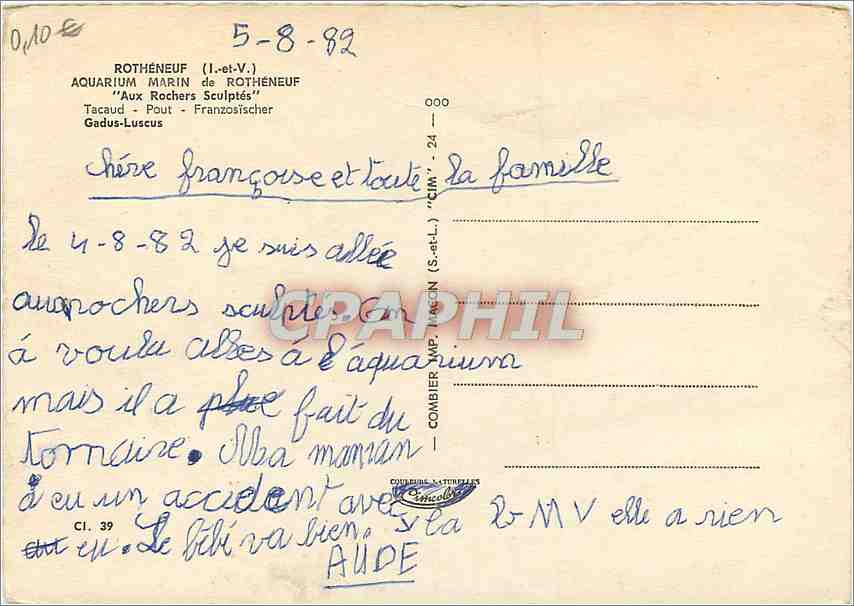 0,10 €
5-8-82
ROTHÉNEUF (I.-et-V.)
AQUARIUM MARIN de ROTHÉNEUF
"Aux Rochers Sculptés"
Tacaud - Pout - Franzosïscher
Gadus-Luscus
chére françoise et toute la famille
le 4-8-82 je suis allée
aux rochers sculptés. On
á voulu alles á l'áquarium
mais il a fait du
tornaire. Ma maman
á eu un accident avec la 2v MV elle a rien
eu. Le bébé va bien.
AUDE
COMBIER IMP. MACON (S.-et-L.) "CIM" - 24 - 000
COULEURS NATURELLES
Cimcolor
Cl. 39
CPAPHIL